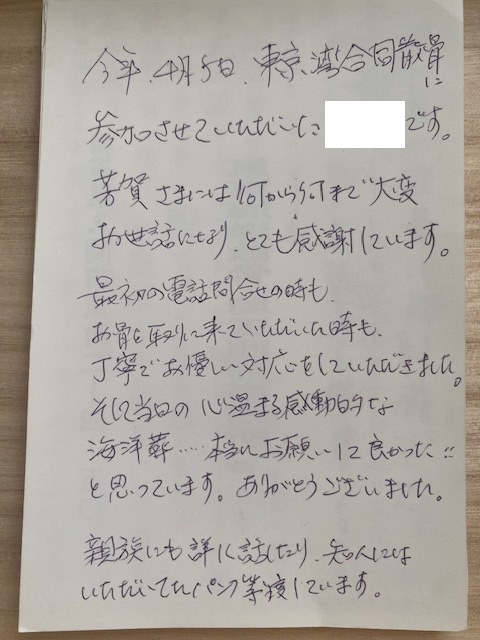 今年、4月5日、東京湾合同散骨に
参加させていただいた です。
芳賀さまには何から何まで大変
お世話になり、とても感謝しています。
最初の電話問合せの時も、
お骨を取りに来ていただいた時も、
丁寧でお優しい対応をしていただきました。
そして当日の心温まる感動的な
海洋葬……本当にお願いして良かった!!
と思っています。ありがとうございました。
親族にも詳しく話したり、知人には
いただいてたパンフ等渡しています。